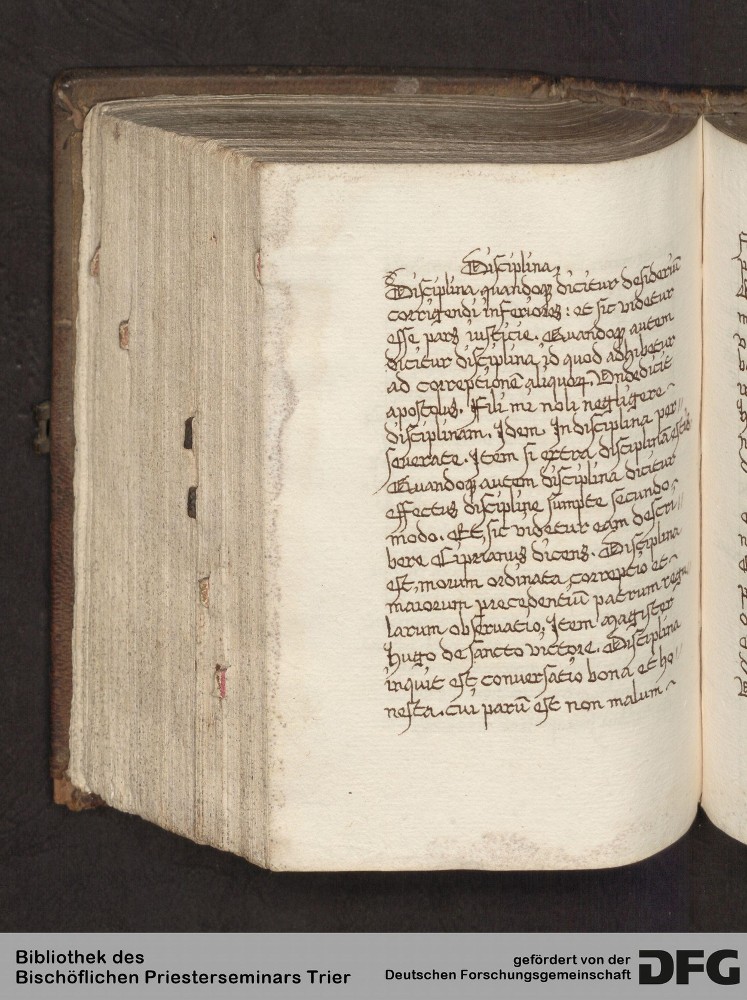 Disciplina
Disciplina quandoqꝫ dicitur desideriū
corrigendi inferiores : et sic videtur
esse pars iusticie. Quandoqꝫ autem
dicitur disciplina id quod adhibetur
ad correptionē aliquoꝝ. Vnde dicit
apostolus. Fili mi noli negligere
disciplinam. Idem. In disciplina per//
severate. Item si extra disciplinā estis
Quandoqꝫ autem disciplina dicitur
effectus discipline sumpte secundo
modo. Et sic videtur eam descri//
bere Ciprianus dicens. Disciplina
est, morum ordinata correptio et
maiorum precedentiū patrum regu
larum observatio, Item magister
Hugo de sancto victore. Disciplina
inquit est conversatio bona et ho//
nesta. cui parū est non malum
Bibliothek des
Bischöflichen Priesterseminars Trier
gefördert von der
Deutschen Forschungsgemeinschaft DFG